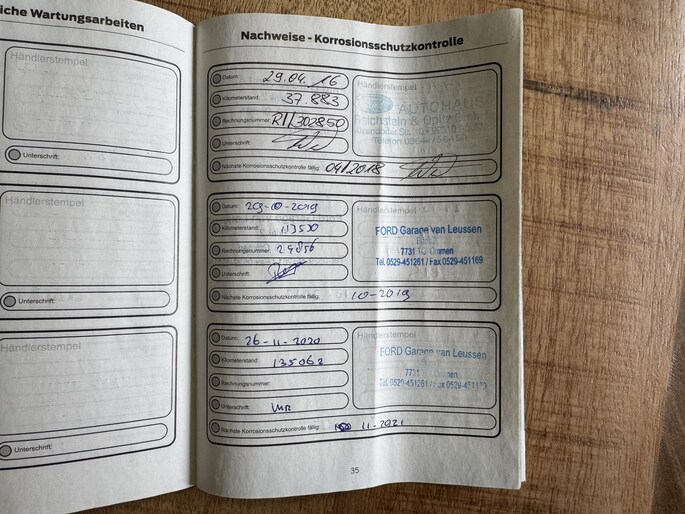 iche Wartungsarbeiten
Händlerstempel
Unterschrift:
Händlerstempel
Unterschrift:
Händlerstempel
Unterschrift:
Nachweise - Korrosionsschutzkontrolle
Datum: 29.04.16
Kilometerstand: 37.883
Rechnungsnummer: R1/302850
Unterschrift:
Händlerstempel
AUTOHAUS
Nächste Korrosionsschutzkontrolle fällig: 04/2018
Datum: 29-10-2019
Kilometerstand: 113530
Rechnungsnummer: 29856
Unterschrift:
Händlerstempel
FORD Garage van Leussen
7731 Ommen
Tel. 0529-451261 / Fax 0529-451169
Nächste Korrosionsschutzkontrolle fällig: 10-2019
Datum: 26-11-2020
Kilometerstand: 135062
Rechnungsnummer:
Unterschrift:
Händlerstempel
FORD Garage van Leussen
Nächste Korrosionsschutzkontrolle fällig: 11-2021
35